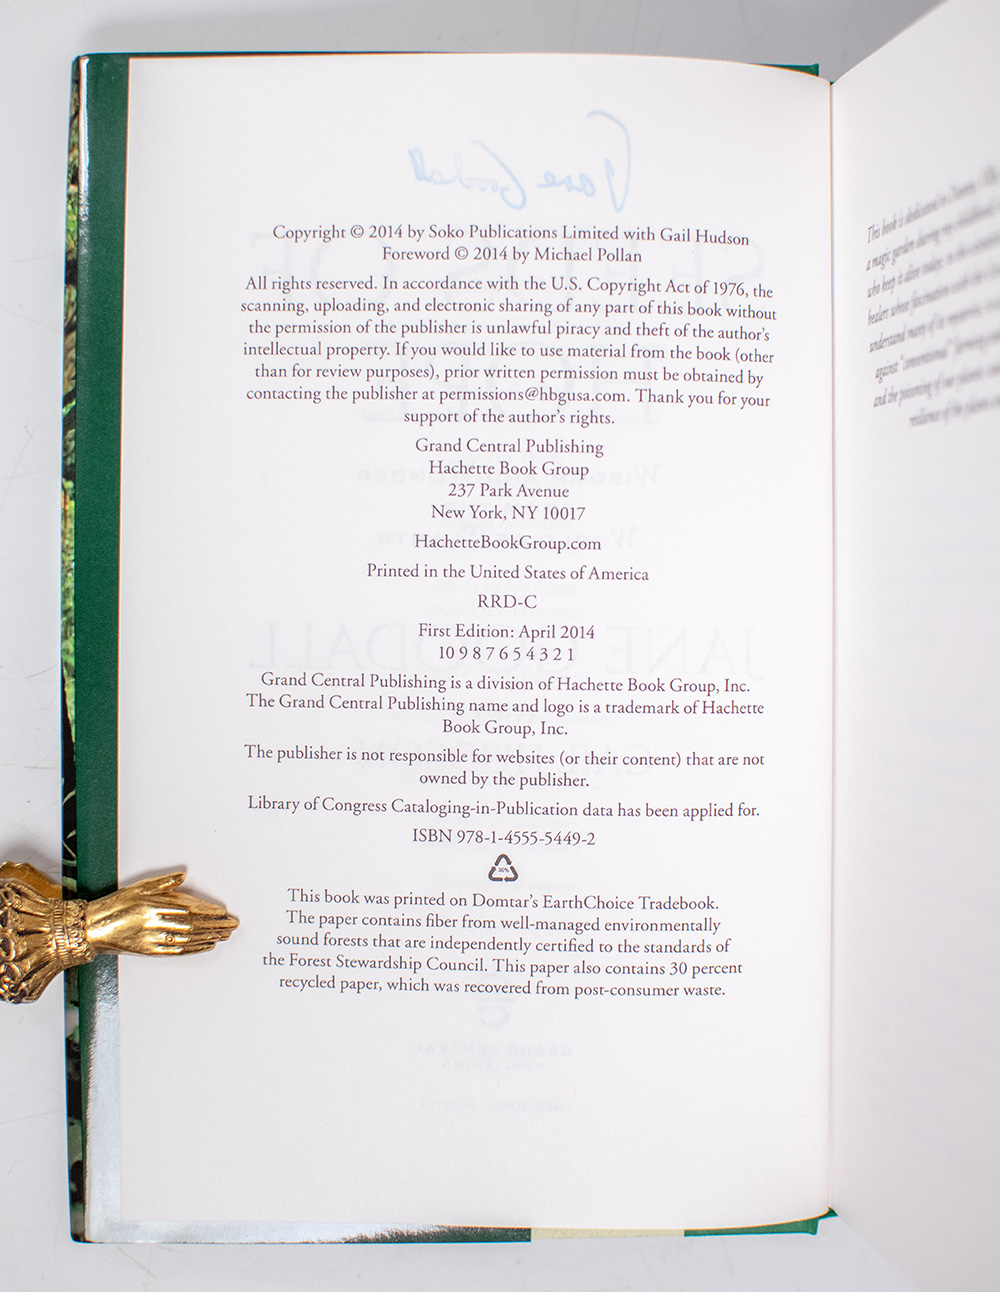 Copyright © 2014 by Soko Publications Limited with Gail Hudson
Foreword © 2014 by Michael Pollan
All rights reserved. In accordance with the U.S. Copyright Act of 1976, the
scanning, uploading, and electronic sharing of any part of this book without
the permission of the publisher is unlawful piracy and theft of the author's
intellectual property. If you would like to use material from the book (other
than for review purposes), prior written permission must be obtained by
contacting the publisher at permissions@hbgusa.com. Thank you for your
support of the author's rights.
Grand Central Publishing
Hachette Book Group
237 Park Avenue
New York, NY 10017
HachetteBookGroup.com
Printed in the United States of America
RRD-C
First Edition: April 2014
10 9 8 7 6 5 4 3 2 1
Grand Central Publishing is a division of Hachette Book Group, Inc.
The Grand Central Publishing name and logo is a trademark of Hachette
Book Group, Inc.
The publisher is not responsible for websites (or their content) that are not
owned by the publisher.
Library of Congress Cataloging-in-Publication data has been applied for.
ISBN 978-1-4555-5449-2
30%
This book was printed on Domtar's EarthChoice Tradebook.
The paper contains fiber from well-managed environmentally
sound forests that are independently certified to the standards of
the Forest Stewardship Council. This paper also contains 30 percent
recycled paper, which was recovered from post-consumer waste.
This book is dedicated to
a magic garden during my childhood
who keep it alive today, to the
healers whose fascination with the
understand many of its
against "conventional" farming
and the poisoning of our planet
resilience of the